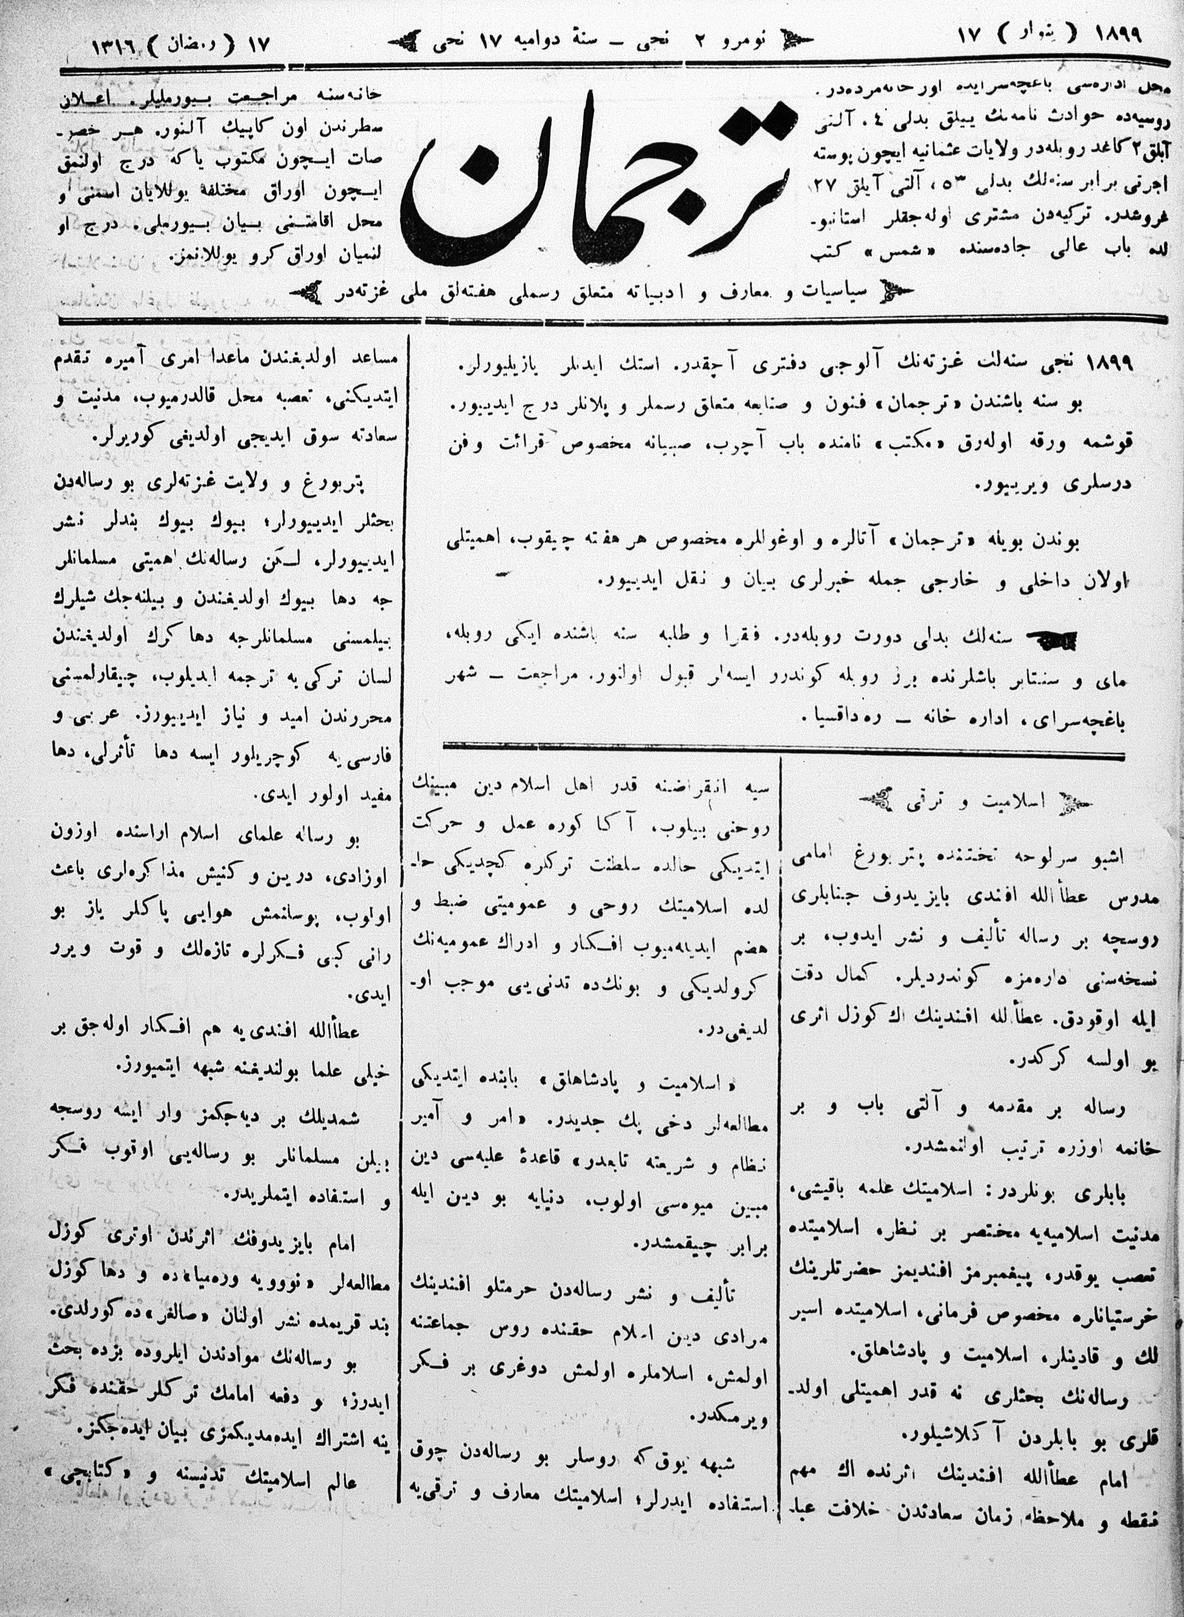 ١٨٩٩ ( ینوار ) ١٧
نومرو ٢ نحی ــ سنۀ دوامیه ١٧ نحی
١٧ ( رمضان ) ١٣١٦
محل اداره‌سی باغچه‌سرایده اور خانه‌مزده‌در.
روسیه‌ده حوادث نامه‌نك ییللق بدلی ٤، آلتی
آیلق ٢ كاغد روبله‌در ولایات عثمانیه ایچون پوسته
اجرتی برابر سنه‌لك بدلی ٥٣، آلتی آیلق ٢٧
غروشدر. تركیه‌دن مشتری اوله‌جقلر استانبو‐
لده باب عالی جاده‌سنده «شمس» كتب
ترجمان
خانه‌سنه مراجعت بیورملیلر. اعلان
سطرندن اون كاپیك آلنور. هر خصو‐
صات ایچون مكتوب یا كه درج اولنمق
ایچون اوراق مختلفه یوللایان اسمنی و
محل اقامتنی بیان بیورملی. درج او
لنمیان اوراق كرو یوللانمز.
سیاسیات و معارف و ادبیاته متعلق رسملی هفته‌لق ملی غزته‌در
١٨٩٩ نجی سنه‌لك غزته‌نك آلوجی دفتری آچقدر. استك ایدنلر یازیلیورلر.
بو سنه باشندن «ترجمان» فنون و صنایعه متعلق رسملر و پلانلر درج ایدییور.
قوشمه ورقه اوله‌رق «مكتب» نامنده باب آچرب، صبیانه مخصوص قرائت وفن
درسلری ویرییور.
بوندن بویله «ترجمان» آتالره و اوغوللره مخصوص هر هفته چیقوب، اهمیتلی
اولان داخلی و خارجی جمله خبرلری بیان و نقل ایدییور.
سنه‌لك بدلی دورت روبله‌در. فقرا و طلبه سنه باشنده ایكی روبله،
مای و سنتابر باشلرنده برر روبله كوندرر ایسه‌لر قبول اولنور. مراجعت ــ شهر
باغچه‌سرای، اداره خانه ــ ره‌داقسیا.
اسلامیت و ترقی
اشبو سرلوحه تختنده پتربورغ امامی
مدرس عطأالله افندی بایزیدوف جنابلری
روسچه بر رساله تألیف و نشر ایدوب، بر
نسخه‌سنی داره‌مزه كوندردیلر. كمال دقت
ایله اوقودق. عطأالله افندینك اك كوزل اثری
بو اولسه كركدر.
رساله بر مقدمه و آلتی باب و بر
خاتمه اوزره ترتیب اولنمشدر.
بابلری بونلردر: اسلامیتك علمه باقیشی،
مدنیت اسلامیه‌یه مختصر بر نظر، اسلامیتده
تعصب یوقدر، پیغمبرمز افندیمز حضرتلرینك
خرستیانلره مخصوص فرمانی، اسلامیتده اسیر
لك و قادینلر، اسلامیت و پادشاهلق.
رساله‌نك بحثلری نه قدر اهمیتلی اولد‐
قلری بو بابلردن آ كلاشیلور.
امام عطأالله افندینك اثرنده اك مهم
نقطه و ملاحظه زمان سعادتدن خلافت عبا‐
سیه انقراضنه قدر اهل اسلام دین مبینك
روحنی بیلوب، آ كا كوره عمل و حركت
ایتدیكی حالده سلطنت تركلره كچدیكی حا‐
لده اسلامیتك روحی و عمومیتی ضبط و
هضم ایدیله‌میوب افكار و ادراك عمومیه‌نك
كرولدیكی و بونك‌ده تدنی‌یی موجب او‐
لدیغی‌در.
«اسلامیت و پادشاهلق» بابنده ایتدیكی
مطالعه‌لر دخی پك جدیدر. «امر و آمیر
نظام و شریعته تابعدر» قاعدۀ علیه‌سی دین
مبین میوه‌سی اولوب، دنیایه بو دین ایله
برابر چیقمشدر.
تألیف و نشر رساله‌دن حرمتلو افندینك
مرادی دین اسلام حقنده روس جماعتنه
اولمش، اسلاملره اولمش دوغری بر فكر
ویرمكدر.
شبهه یوق كه روسلر بو رساله‌دن چوق
استفاده ایدرلر؛ اسلامیتك معارف و ترقی‌یه
مساعد اولدیغندن ماعدا امری آمیره تقدم
ایتدیكنی، تعصبه محل قالدرمیوب، مدنیت و
سعادته سوق ایدیجی اولدیغی كوریرلر.
پتربورغ و ولایت غزته‌لری بو رساله‌دن
بحثلر ایدییورلر؛ بیوك بیوك بندلر نشر
ایدییورلر، لكن رساله‌نك اهمیتی مسلمانلر
جه دها بیوك اولدیغندن و بیلنه‌جك شیلرك
بیلمسنی مسلمانلرجه دها كرك اولدیغندن
لسان تركی‌یه ترجمه ایدیلوب، چیقارلمسنی
محررندن امید و نیاز ایدییورز. عربی و
فارسی‌یه كوچریلور ایسه دها تأثرلی، دها
مفید اولور ایدی.
بو رساله علمای اسلام اراسنده اوزون
اوزادی، درین و كنیش مذا كره‌لری باعث
اولوب، پوسلانمش هوایی پاكلر یاز بو
رانی كبی فكرلره تازه‌لك و قوت ویرر
ایدی.
عطأالله افندی‌یه هم افكار اوله‌جق بر
خیلی علما بولندیغنه شبهه ایتمیورز.
شمدیلك بر دیه‌جكمز وار ایسه روسجه
بیلن مسلمانلر بو رساله‌یی اوقوب فكر
و استفاده ایتملریدر.
امام بایزیدوفك اثرندن اوتری كوزل
مطالعه‌لر «نوویه وره‌میا»ده و دها كوزل
بند قریمده نشر اولنان «صالغر»ده كورلدی.
بو رساله‌نك موادندن ایلروده بزده بحث
ایدرز؛ و دفعه امامك تركلر حقنده فكر
ینه اشتراك ایده‌مدیكمزی بیان ایده‌جكز.
عالم اسلامیتك تدنیسنه و «كتابچی»